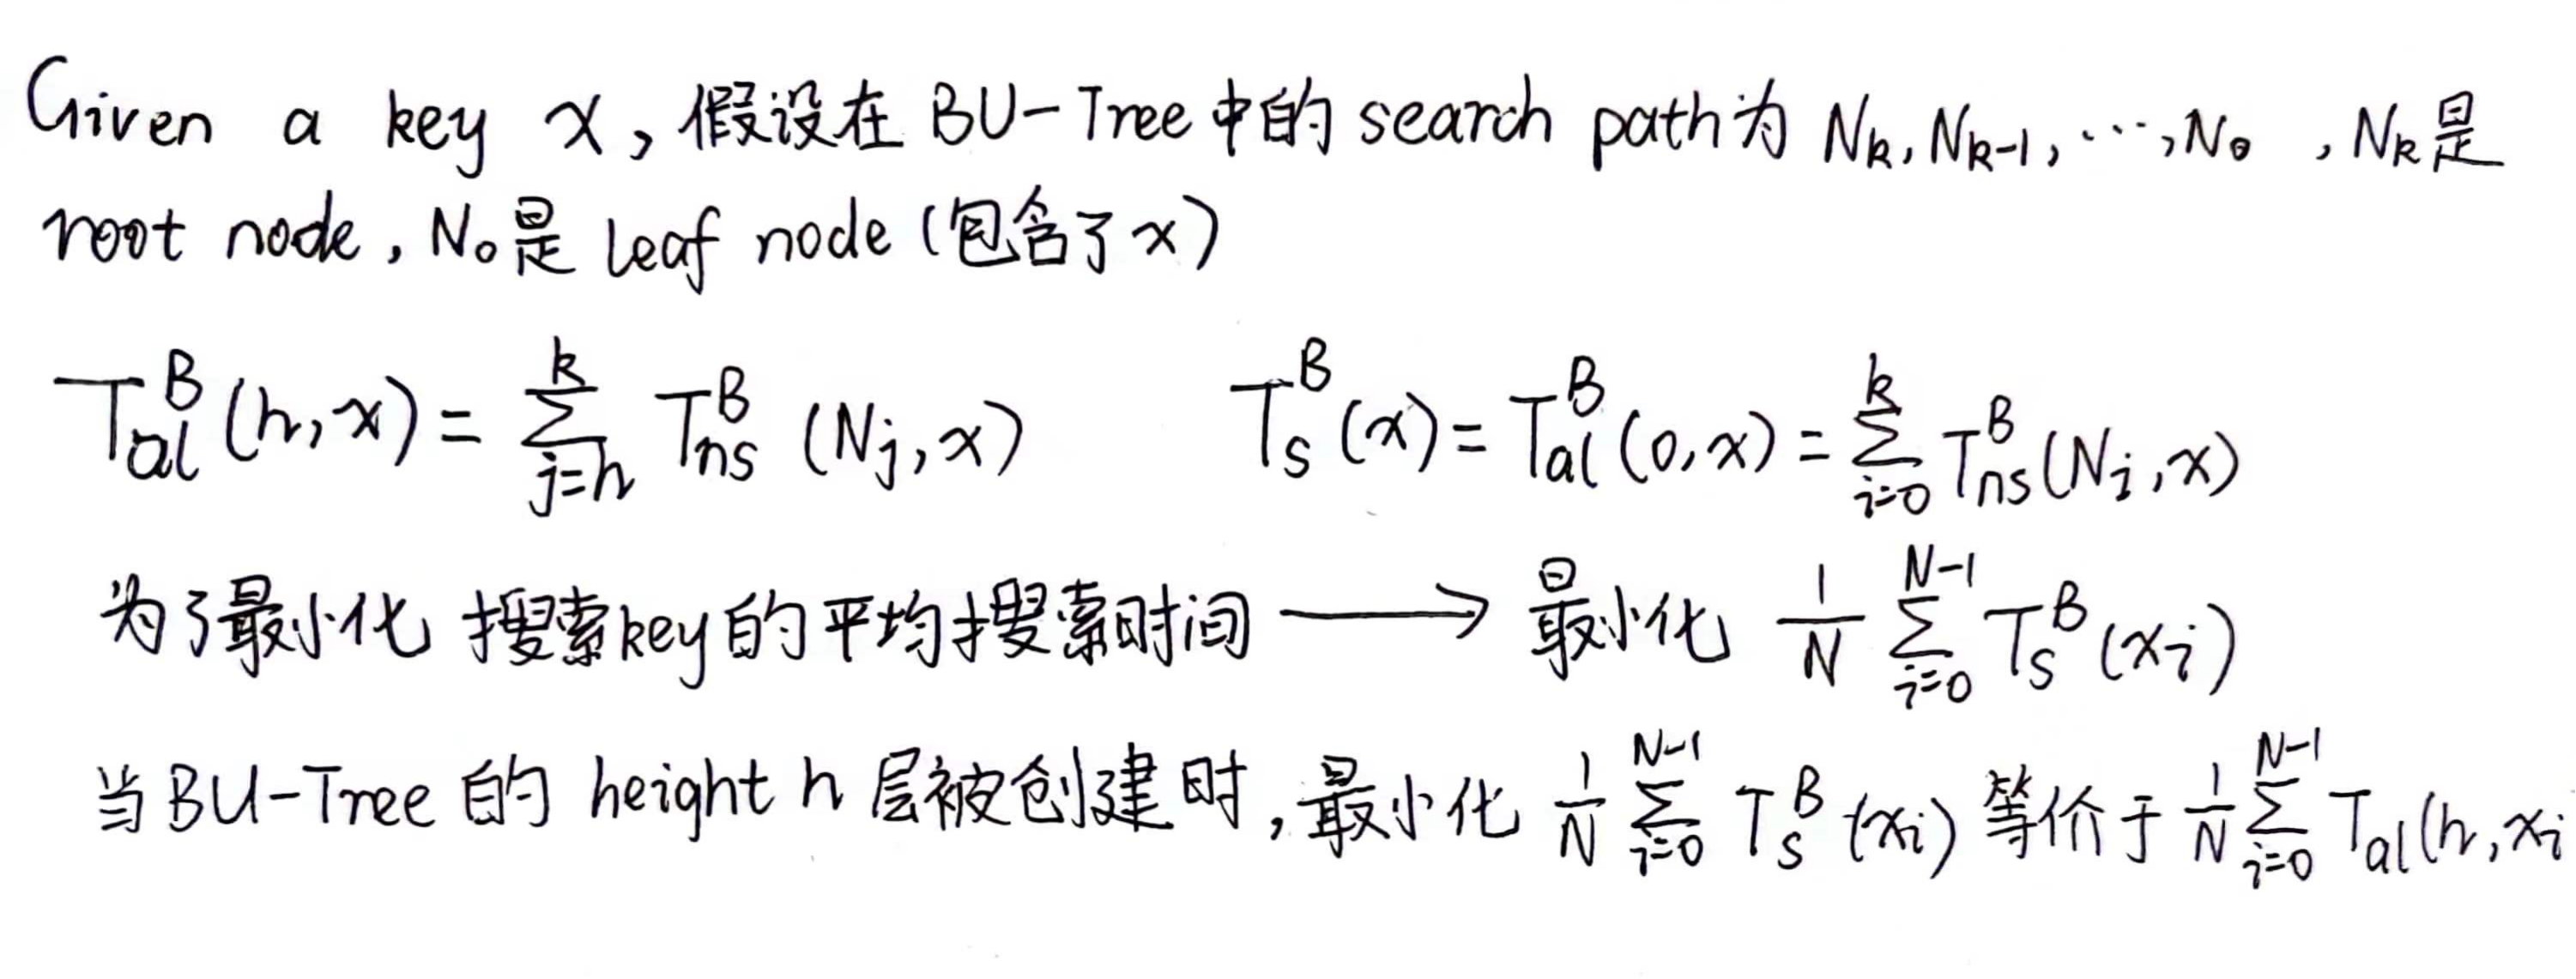 Given a key x, 假设在 BU-Tree 中的 search path 为 N_k, N_{k-1}, ⋯, N_0 , N_k 是
root node, N_0 是 leaf node (包含了 x)
T_{al}^B (h, x) = \sum_{j=h}^{k} T_{ns}^B (N_j, x)    T_s^B (x) = T_{al}^B (0, x) = \sum_{i=0}^{k} T_{ns}^B (N_i, x)
为了最小化 搜索key的平均搜索时间 ⟶ 最小化 \frac{1}{N} \sum_{i=0}^{N-1} T_s^B (x_i)
当BU-Tree 的 height h 层被创建时, 最小化 \frac{1}{N} \sum_{i=0}^{N-1} T_s^B (x_i) 等价于 \frac{1}{N} \sum_{i=0}^{N-1} T_{al} (h, x_i